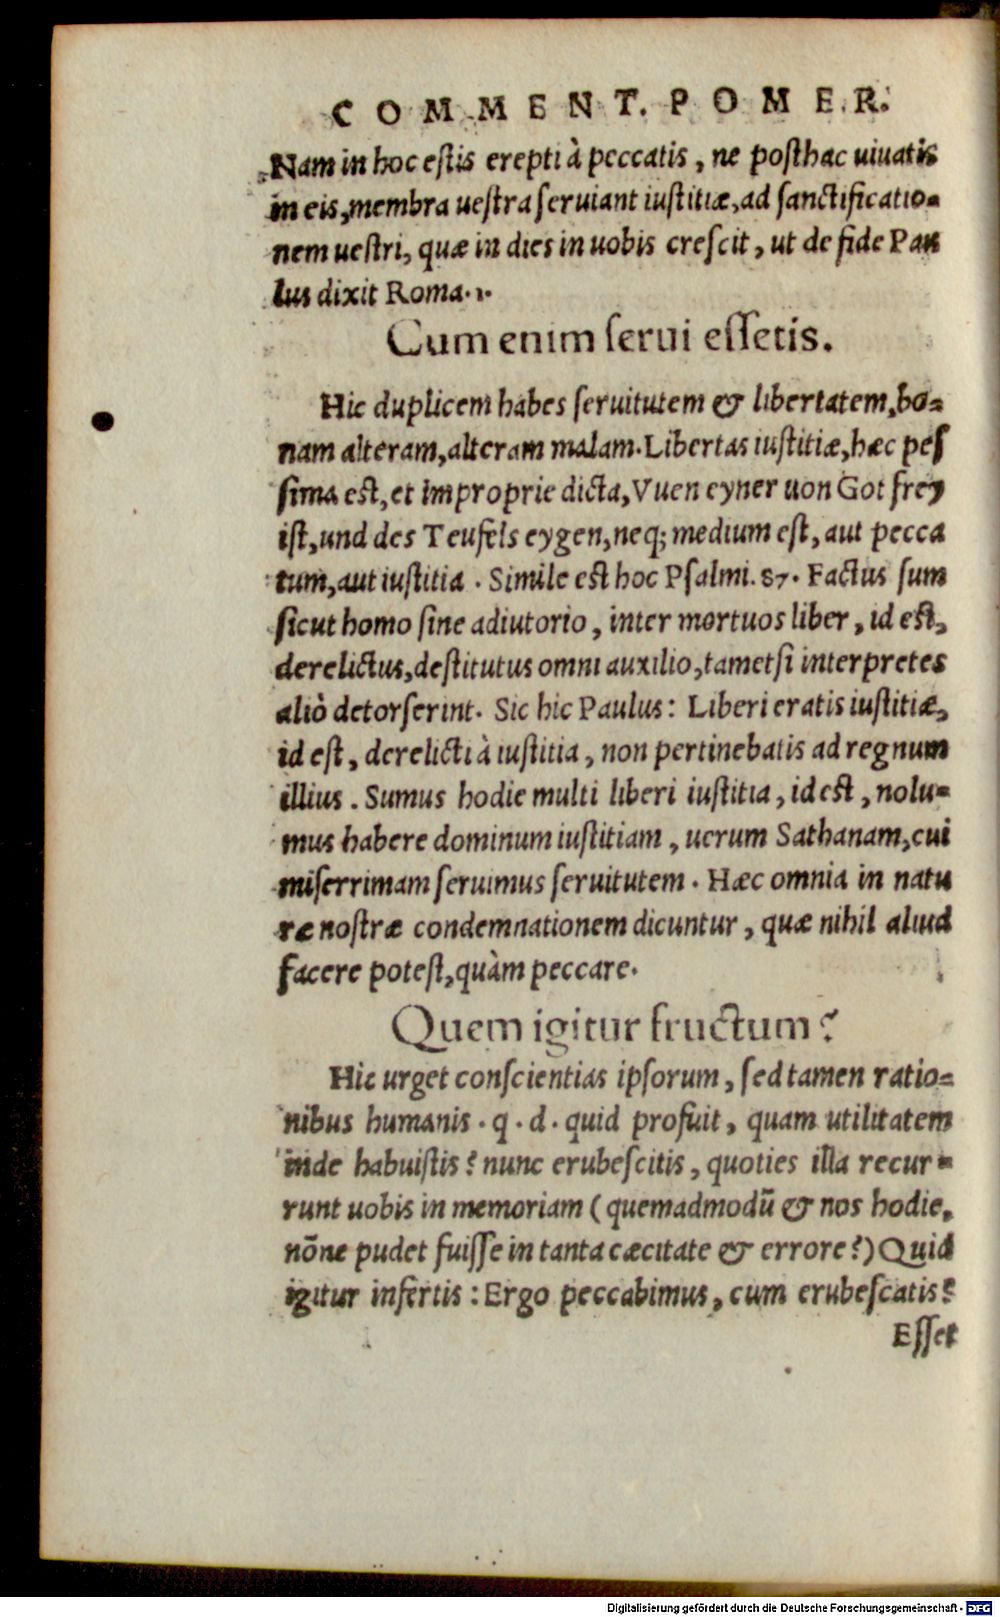 COMMENT. POMER.
Nam in hoc estis erepti à peccatis, ne posthac uiuatis
in eis, membra uestra seruiant iustitiæ, ad sanctificatio-
nem uestri, quæ in dies in uobis crescit, ut de fide Pau
lus dixit Roma.1.
Cum enim serui essetis.
Hic duplicem habes seruitutem & libertatem, bo-
nam alteram, alteram malam. Libertas iustitiæ, hæc pes
sima est, et improprie dicta, Vuen eyner uon Got frey
ist, und des Teufels eygen, neq; medium est, aut pecca
tum, aut iustitia. Simile est hoc Psalmi. 87. Factus sum
sicut homo sine adiutorio, inter mortuos liber, id est,
derelictus, destitutus omni auxilio, tametsi interpretes
aliò detorserint. Sic hic Paulus: Liberi eratis iustitiæ,
id est, derelicti à iustitia, non pertinebatis ad regnum
illius. Sumus hodie multi liberi iustitia, id est, nolu-
mus habere dominum iustitiam, uerum Sathanam, cui
miserrimam seruimus seruitutem. Hæc omnia in natu
ræ nostræ condemnationem dicuntur, quæ nihil aliud
facere potest, quàm peccare.
Quem igitur fructum?
Hic urget conscientias ipsorum, sed tamen ratio-
nibus humanis. q. d. quid profuit, quam utilitatem
inde habuistis? nunc erubescitis, quoties illa recur-
runt uobis in memoriam (quemadmodū & nos hodie,
nōne pudet fuisse in tanta cæcitate & errore?) Quid
igitur infertis: Ergo peccabimus, cum erubescatis?
Esset
Digitalisierung gefördert durch die Deutsche Forschungsgemeinschaft - DFG